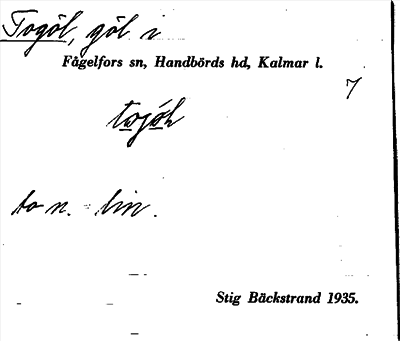 Togöl, göl i
Fågelfors sn, Handbörds hd, Kalmar l.
7
to n. = lin.
Stig Bäckstrand 1935.